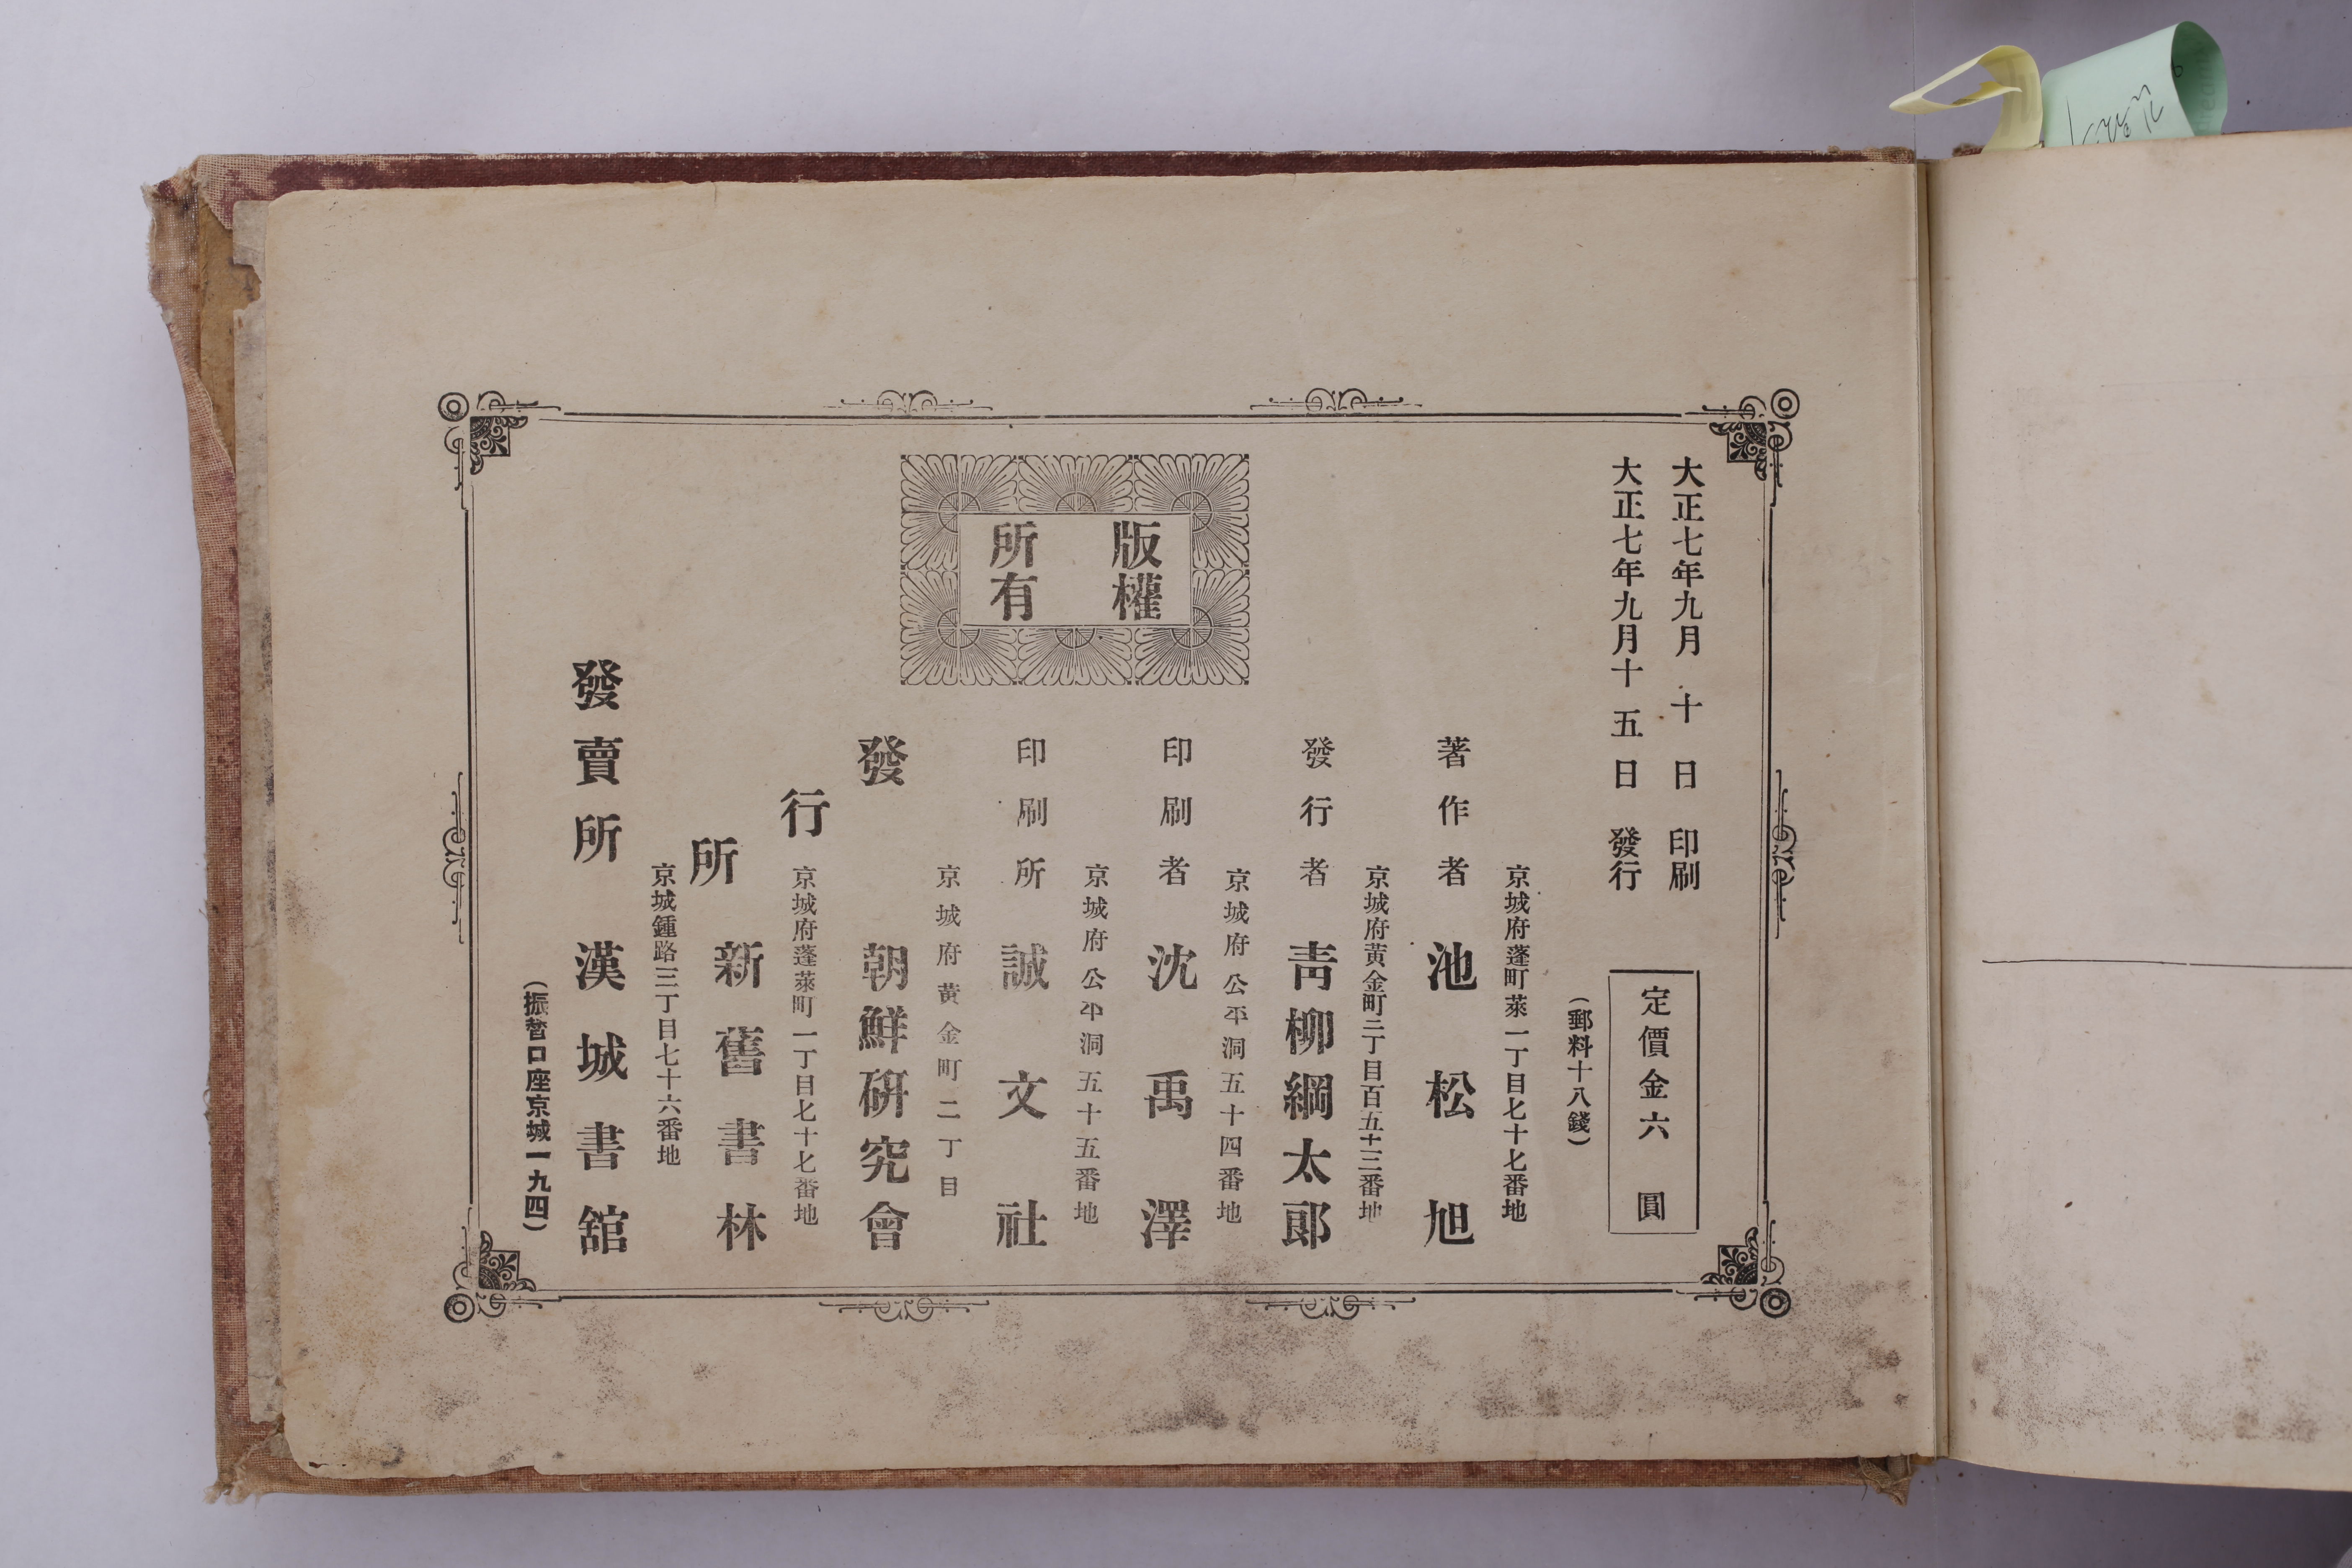 大正七年九月十日印刷
大正七年九月十五日發行
定價金六圓
(郵料十八錢)
京城府蓬町萊一丁目七十七番地
著作者 池松旭
京城府黃金町二丁目百五十三番地
發行者 靑柳綱太郞
京城府公平洞五十四番地
印刷者 沈禹澤
京城府公平洞五十五番地
印刷所 誠文社
版權
所有
京城府黃金町二丁目
發行所
朝鮮硏究會
京城府蓬萊町一丁目七十七番地
新舊書林
京城鍾路三丁目七十六番地
發賣所 漢城書舘
(振替口座京城一九四)